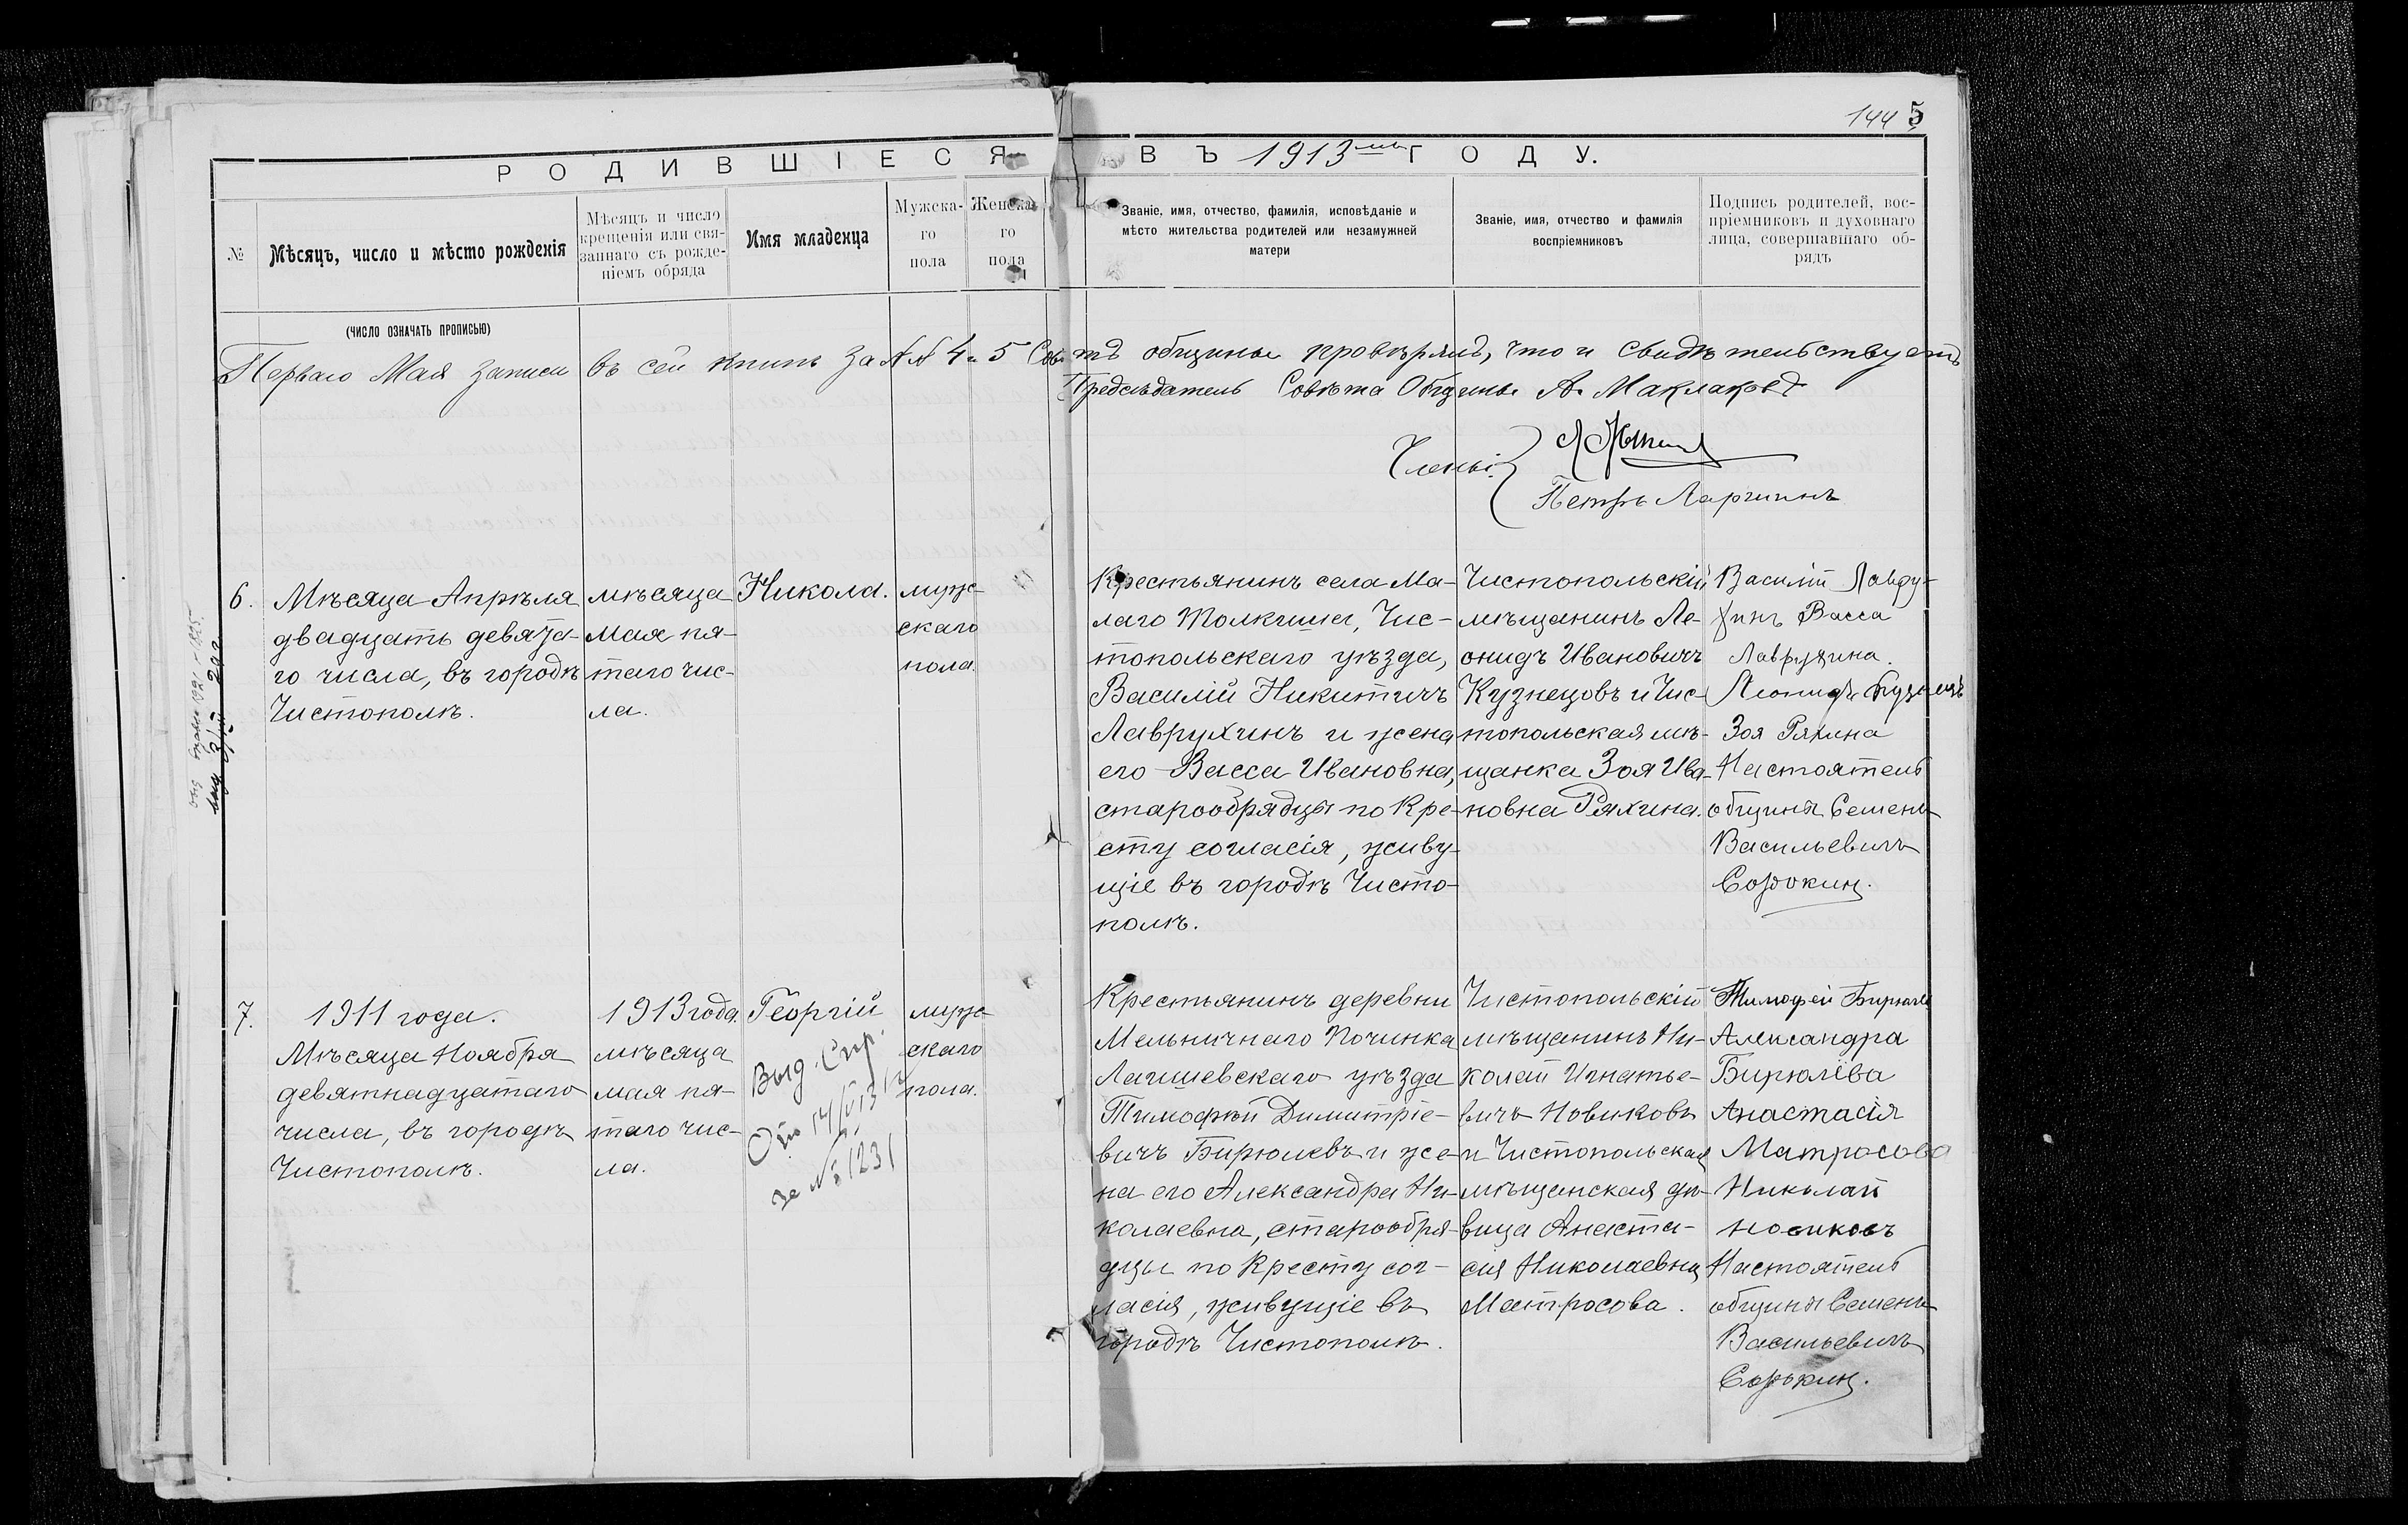 144 5
РОДИВШІЕСЯ ВЪ 1913мъ ГОДУ.
№
Мѣсяцъ, число и мѣсто рожденія
Мѣсяцъ и число
крещенія или свя-
заннаго съ рожде-
ніемъ обряда
Имя младенца
Мужска-
го
пола
Женска-
го
пола
Званіе, имя, отчество, фамилія, исповѣданіе и
мѣсто жительства родителей или незамужней
матери
Званіе, имя, отчество и фамилія
воспріемниковъ
Подпись родителей, вос-
пріемниковъ и духовнаго
лица, совершавшаго об-
рядъ
(ЧИСЛО ОЗНАЧАТЬ ПРОПИСЬЮ)
Перваго Мая записи въ сей книгѣ за №№ 4 и 5 Совѣтъ общины провѣрялъ, что и свидѣтельствуетъ
Предсѣдатель Совѣта Общины А. Маклаковъ
Члены:
Петръ
6.
Мѣсяца Апрѣля
двадцать девята-
го числа, въ городѣ
Чистополѣ.
мѣсяца
Мая пя-
таго чис-
ла.
Никола.
муж-
скаго
пола.
Крестьянинъ села Ма-
лаго Толкиша, Чис-
топольскаго уѣзда,
Василій Никитичъ
Лаврухинъ и жена
его Васса Ивановна,
старообрядцы по Кре-
сту согласія, живу-
щіе въ городѣ Чисто-
полѣ.
Чистопольскій
мѣщанинъ Ле-
онидъ Ивановичъ
Кузнецовъ и Чис-
топольская мѣ-
щанка Зоя Ива-
новна Ряхина.
Василій Лавру-
хинъ Васса
Лаврухина.
Леонидъ Кузнецъ
Зоя Ряхина
Настоятель
общины Семенъ
Васильевичъ
Сорокин.
7.
1911 года.
Мѣсяца Ноября
девятнадцатаго
числа, въ городѣ
Чистополѣ.
1913 года.
мѣсяца
мая пя-
таго чис-
ла.
Георгій
Выд. Спр.
От 14/V 13
за № 1231
муж-
скаго
пола.
Крестьянинъ деревни
Мельничнаго Починка
Лаишевскаго уѣзда
Тимофей Димитріе-
вичъ Бирюлевъ и же-
на его Александра Ни-
колаевна, старообря-
дцы по Кресту сог-
ласія, живущіе въ
городѣ Чистополѣ.
Чистопольскій
мѣщанинъ Ни-
колай Игнатье-
вичъ Новиковъ
и Чистопольская
мѣщанская дѣ-
вица Анаста-
сія Николаевна
Матросова.
Тимофей Бирюле
Александра
Бирюлева
Анастасія
Матросова
Николай
Новиковъ
Настоятель
общины Семенъ
Васильевичъ
Сорокин.